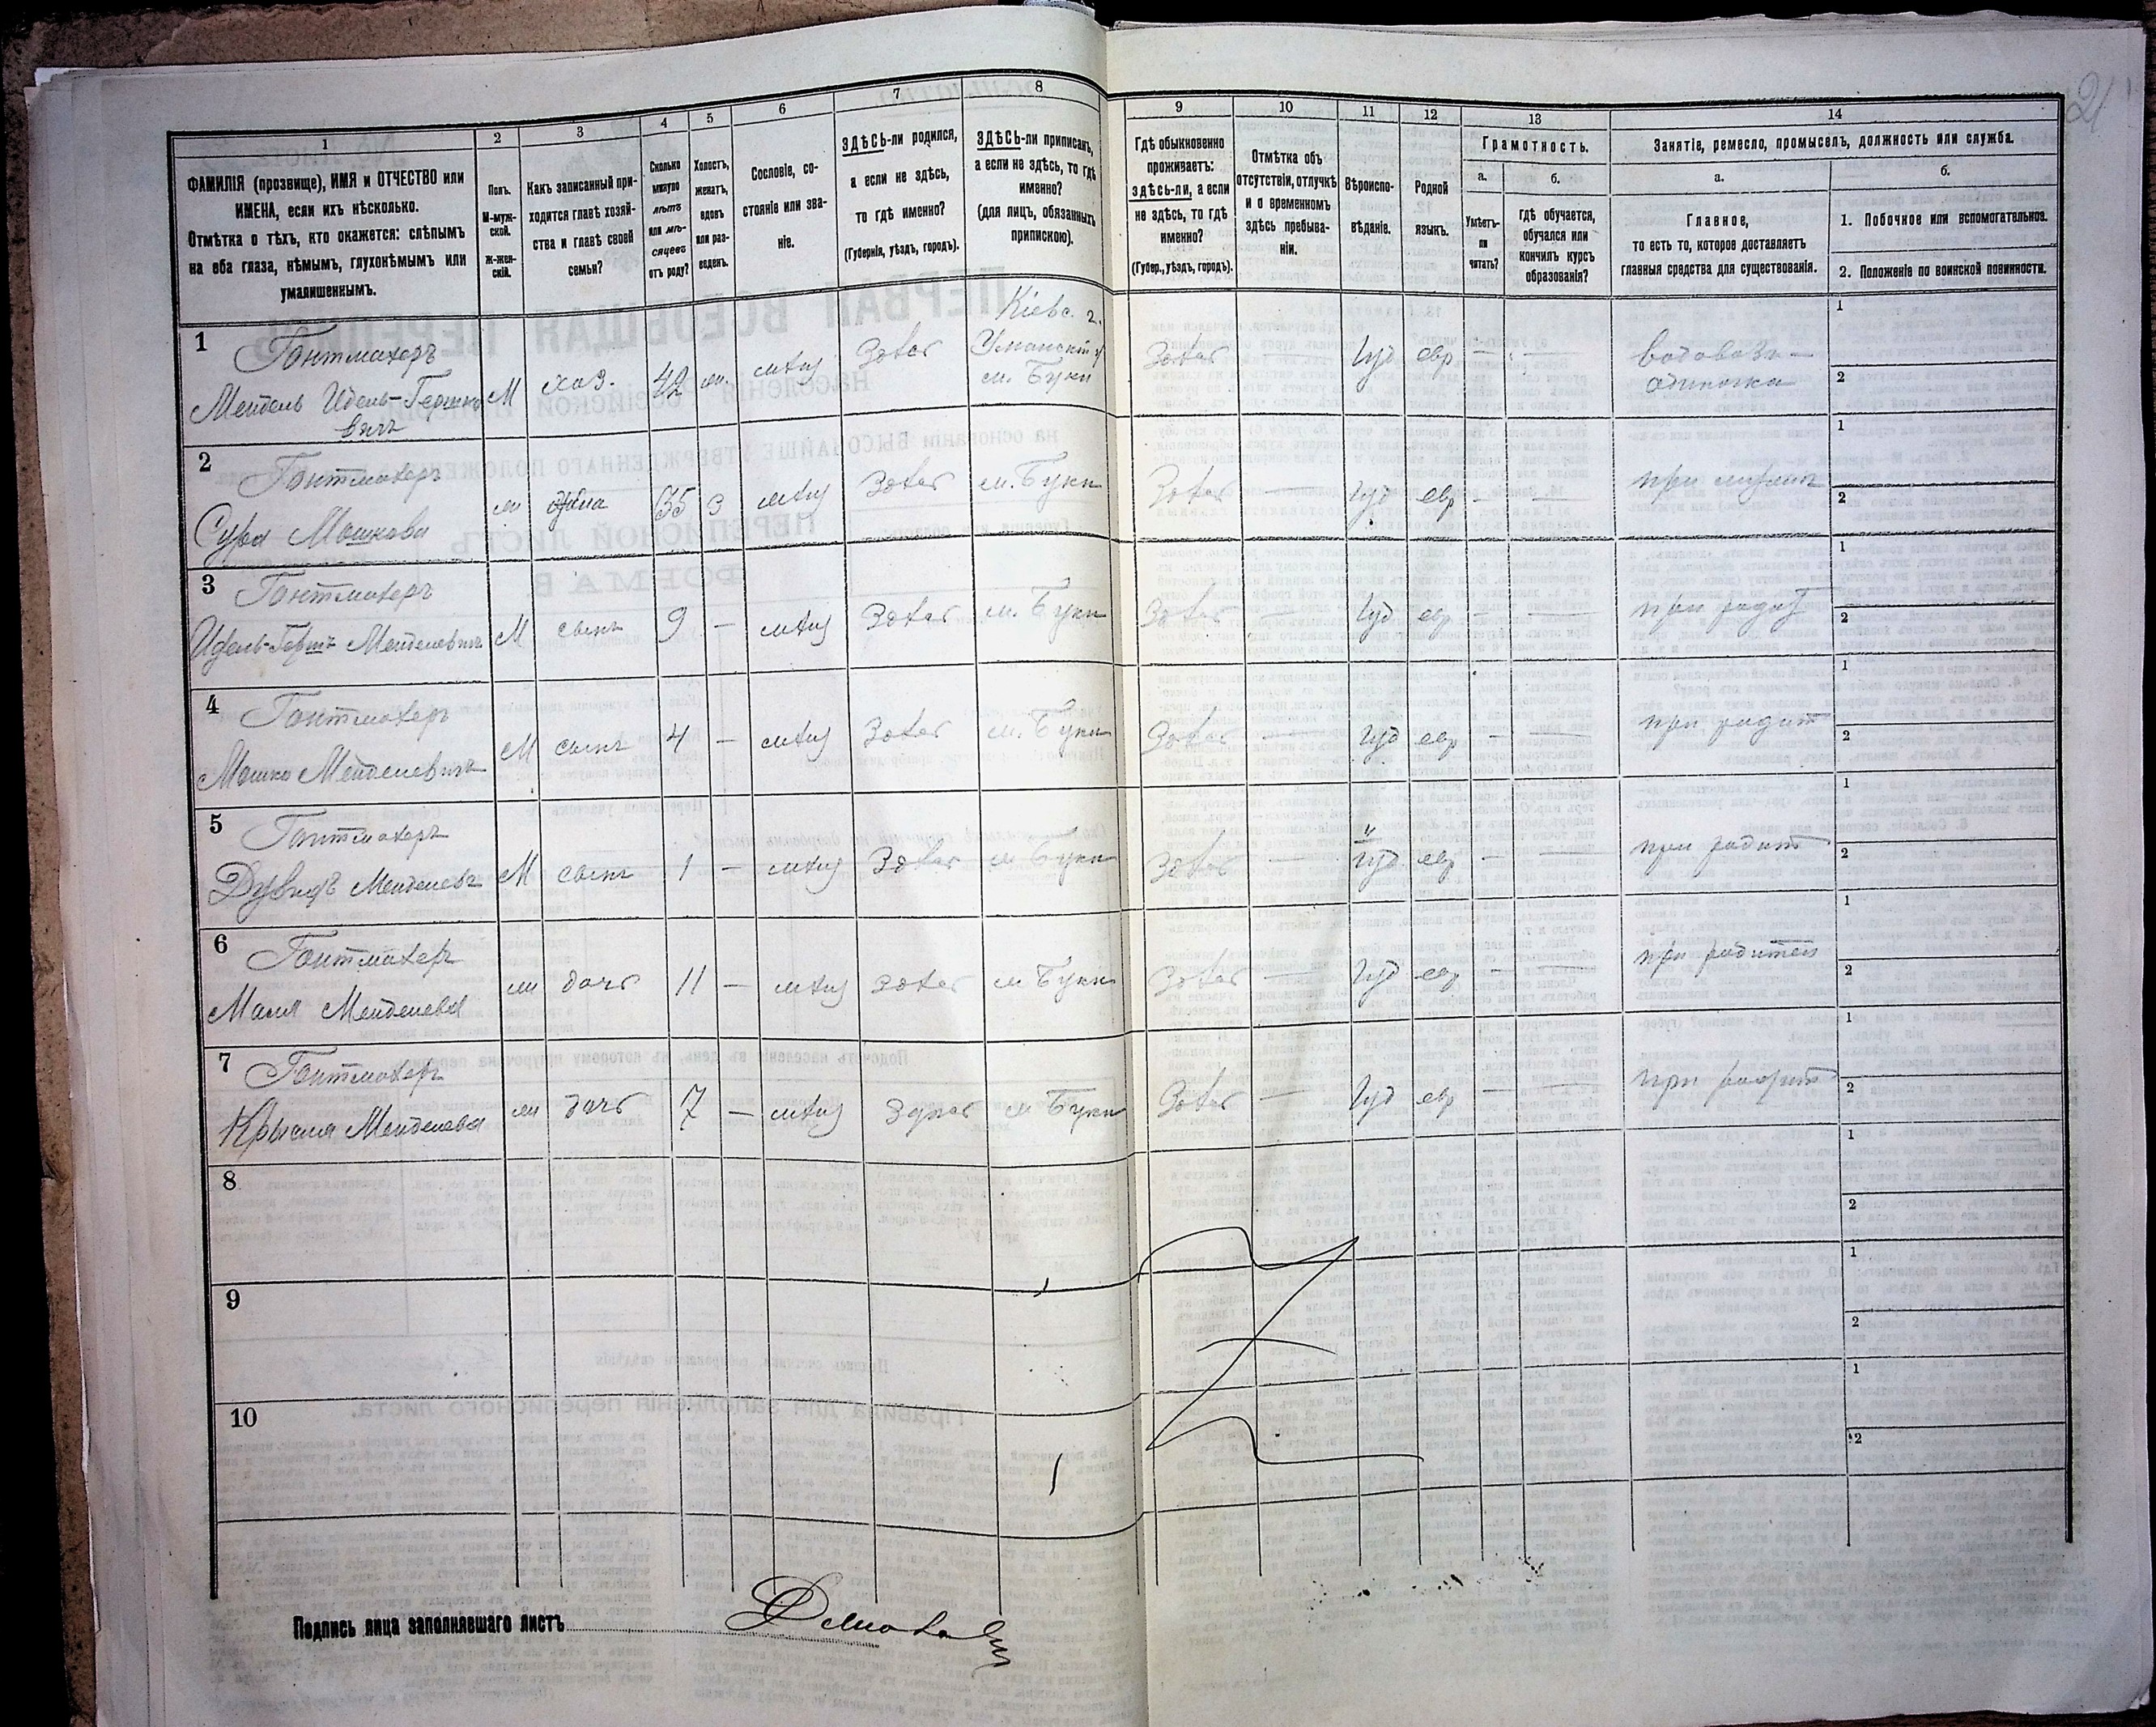 21
1
ФАМИЛІЯ (прозвище), ИМЯ и ОТЧЕСТВО или
ИМЕНА, если ихъ нѣсколько.
Отмѣтка о тѣхъ, кто окажется: слѣпымъ
на оба глаза, нѣмымъ, глухонѣмымъ или
умалишеннымъ.
2
Полъ.
М-муж-
ской.
Ж-жен-
скій.
3
Какъ записанный при-
ходится главѣ хозяй-
ства и главѣ своей
семьи?
4
Сколько
минуло
лѣтъ
или мѣ-
сяцевъ
отъ роду?
5
Холостъ,
женатъ,
вдовъ
или раз-
веденъ.
6
Сословіе, со-
стояніе или зва-
ніе.
7
ЗДѢСЬ-ли родился,
а если не здѣсь,
то гдѣ именно?
(Губернія, уѣздъ, городъ).
8
ЗДѢСЬ-ли приписанъ,
а если не здѣсь, то гдѣ
именно?
(для лицъ, обязанныхъ
припискою).
9
Гдѣ обыкновенно
проживаетъ:
здѣсь-ли, а если
не здѣсь, то гдѣ
именно?
(Губер., уѣздъ, городъ).
10
Отмѣтка объ
отсутствіи, отлучкѣ
и о временномъ
здѣсь пребыва-
ніи.
11
Вѣроиспо-
вѣданіе.
12
Родной
языкъ.
13
Грамотность.
а.
Умѣетъ-
ли
читать?
б.
гдѣ обучается,
обучался или
кончилъ курсъ
образованія?
14
Занятіе, ремесло, промыселъ, должность или служба.
а.
Главное,
то есть то, которое доставляетъ
главныя средства для существованія.
б.
1. Побочное или вспомогательное.
2. Положеніе по воинской повинности.
1 Гонтмахеръ
Мендель Идель-Гершко
вичъ
М хоз. 42 мѣщ Здѣсь
Кіевс. г.
Уманскій у
м. Буки
Здѣсь — Іуд евр — —
водовозъ —
одиночка
1
2
2 Гонтмахеръ
Сура Мошкова
жена 35 з мѣщ Здѣсь м. Буки
Здѣсь — Іуд евр
1
2
3 Гонтмахеръ
Идель-Гершъ Менделевичъ
М сынъ 9 — мѣщ Здѣсь м. Буки
Здѣсь — Іуд евр — — при родит
1
2
4 Гонтмахеръ
Мошко Менделевичъ
М сынъ 4 — мѣщ Здѣсь м. Буки
Здѣсь — Іуд евр — — при родит
1
2
5 Гонтмахеръ
Дувидъ Менделевъ
М сынъ 1 — мѣщ Здѣсь м Буки
Здѣсь — Іуд евр — — при родит
1
2
6 Гонтмахеръ
Маля Менделева
дочь 11 — мѣщ Здѣсь м Буки
Здѣсь — Іуд евр — — при родител
1
2
7 Гонтмахеръ
Менделева
дочь 7 — мѣщ Здѣсь м Буки
Здѣсь — Іуд евр — — при родит
1
2
8
1
2
9
1
2
10
1
2
Подпись лица заполнявшаго листъ